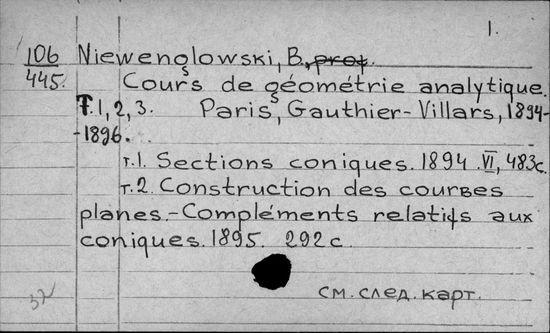 1.
106 Niewenglowski, B., prof.
445. Cours de géométrie analytique.
T.1, 2, 3. Paris, Gauthier-Villars, 1894-
-1896.
т.1. Sections coniques. 1894. VI, 483с.
т.2. Construction des courbes
planes.-Compléments relatifs aux
coniques. 1895. 292 с.
см. след. карт.
32